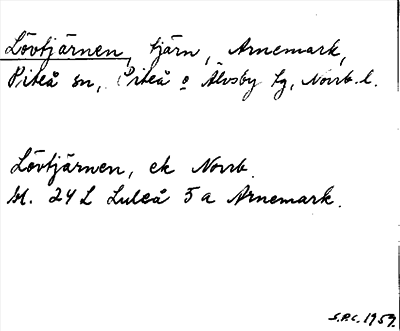 Lövtjärnen, tjärn, Arnemark,
Piteå sn, Piteå o Älvsby tg, Norrb. l.
Lövtjärnen, ek Norrb.
bl. 24 L Luleå 5 a Arnemark.
S.P.C. 1959.